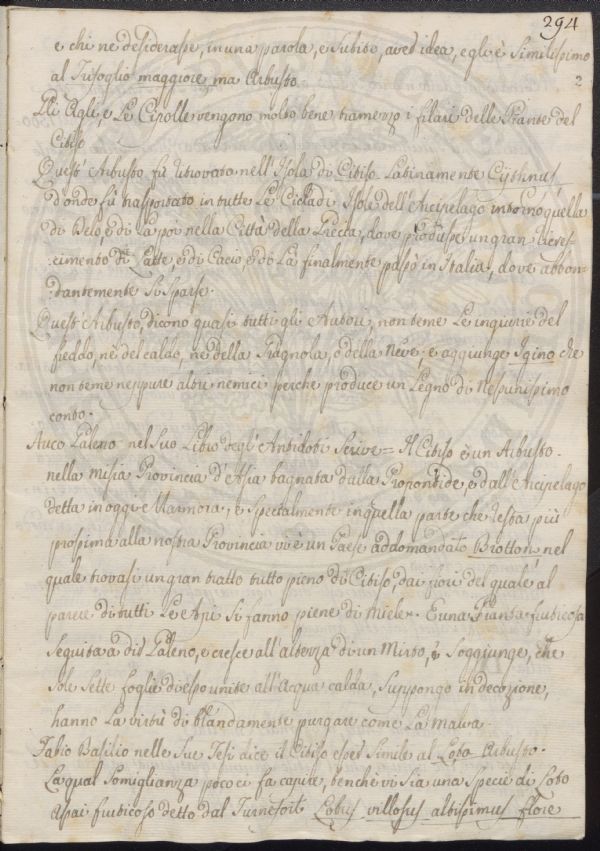 294
e chi ne desiderasse, in una parola, e subito, aved idea, egli è Similissimo
al Trifoglio maggiore, ma Arbusto.
2
Gli Agli, e Le Cipolle vengono molto bene tramezzo i filari delle Piante del
Citiso.
Quest' Arbusto fù ritrovato nell'Isola di Citiso Latinamente Cythnus,
d'onde fù trasportato in tutte Le Cicladi Isole dell'Arcipelago intorno quella
di Delo, e di La poi nella Città della Grecia, dove produsse un gran accres-
:cimento di Latte, e di Cacio, e di Là finalmente passò in Italia, dove abbon=
:dantemente si sparse.
Quest'Arbusto, dicono quasi tutti gli Autori, non teme Le ingiurie del
freddo, nè del caldo, nè della Gragnola, o della Neve; e aggiunge Igino che
non teme neppure altri nemici perche produce un Legno di nessunissimo
conto.
Auco Galeno nel Suo Libro degl'Antidoti Scrive= Il Citiso è un Arbusto
nella Misia Provincia d'Asia bagnata dalla Propontide, e dall'Arcipelago
detta in oggi Marmora, e specialmente in quella parte che resta più
prossima alla nostra Provincia vi è un Paese addomandato Brotton, nel
quale trovasi un gran tratto tutto pieno di Citiso, dai fiori del quale al
parere di tutti Le Api si fanno piene di miele. E una Pianta fruticosa
seguita a dir Galeno, e cresce all'altezza di un Mirto, e Soggiunge, che
Sole Sette foglie di esso unite all'Acqua calda, suppongo in decozione,
hanno La virtù di blandamente purgare come La Malva.
Fabio Basilio nelle Sue Tesi dice il Citiso esser Simile al Loto Arbusto.
La qual Somiglianza poco ci fa capire, benchè vi Sia una Specie di Loto
assai fruticoso detto dal Turnefort Lotus villosus altissimus flore